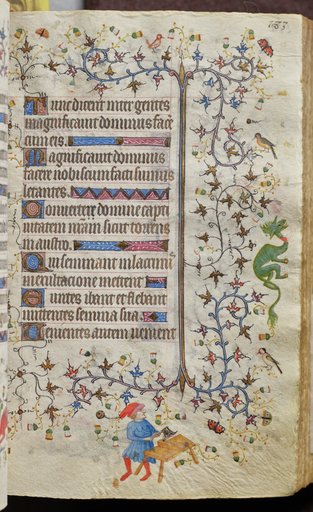 Tunc dicent inter gentes
magnificauit dominus face
cum eis.
Magnificauit dominus
facere nobiscum facti sumus
letantes.
Conuertere domine capti
uitatem nram sicut torrens
in austro.
Qui seminant in lacrimis
in exultacione metent
Euntes ibant et flebant
mittentes semina sua.
Uenientes autem uenient